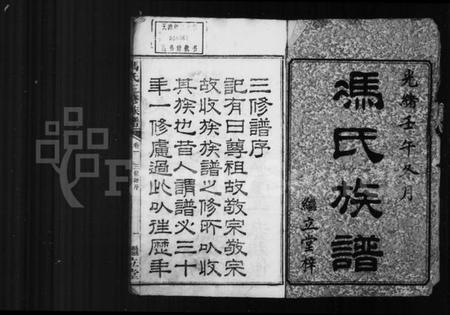 光緒壬午冬月
馮氏族譜
繼立堂梓
三修譜序
記有曰尊祖故敬宗敬宗
故收族族譜之修所以收
其族也昔人謂譜必三十
年一修慮過此以往歷年
繼立堂